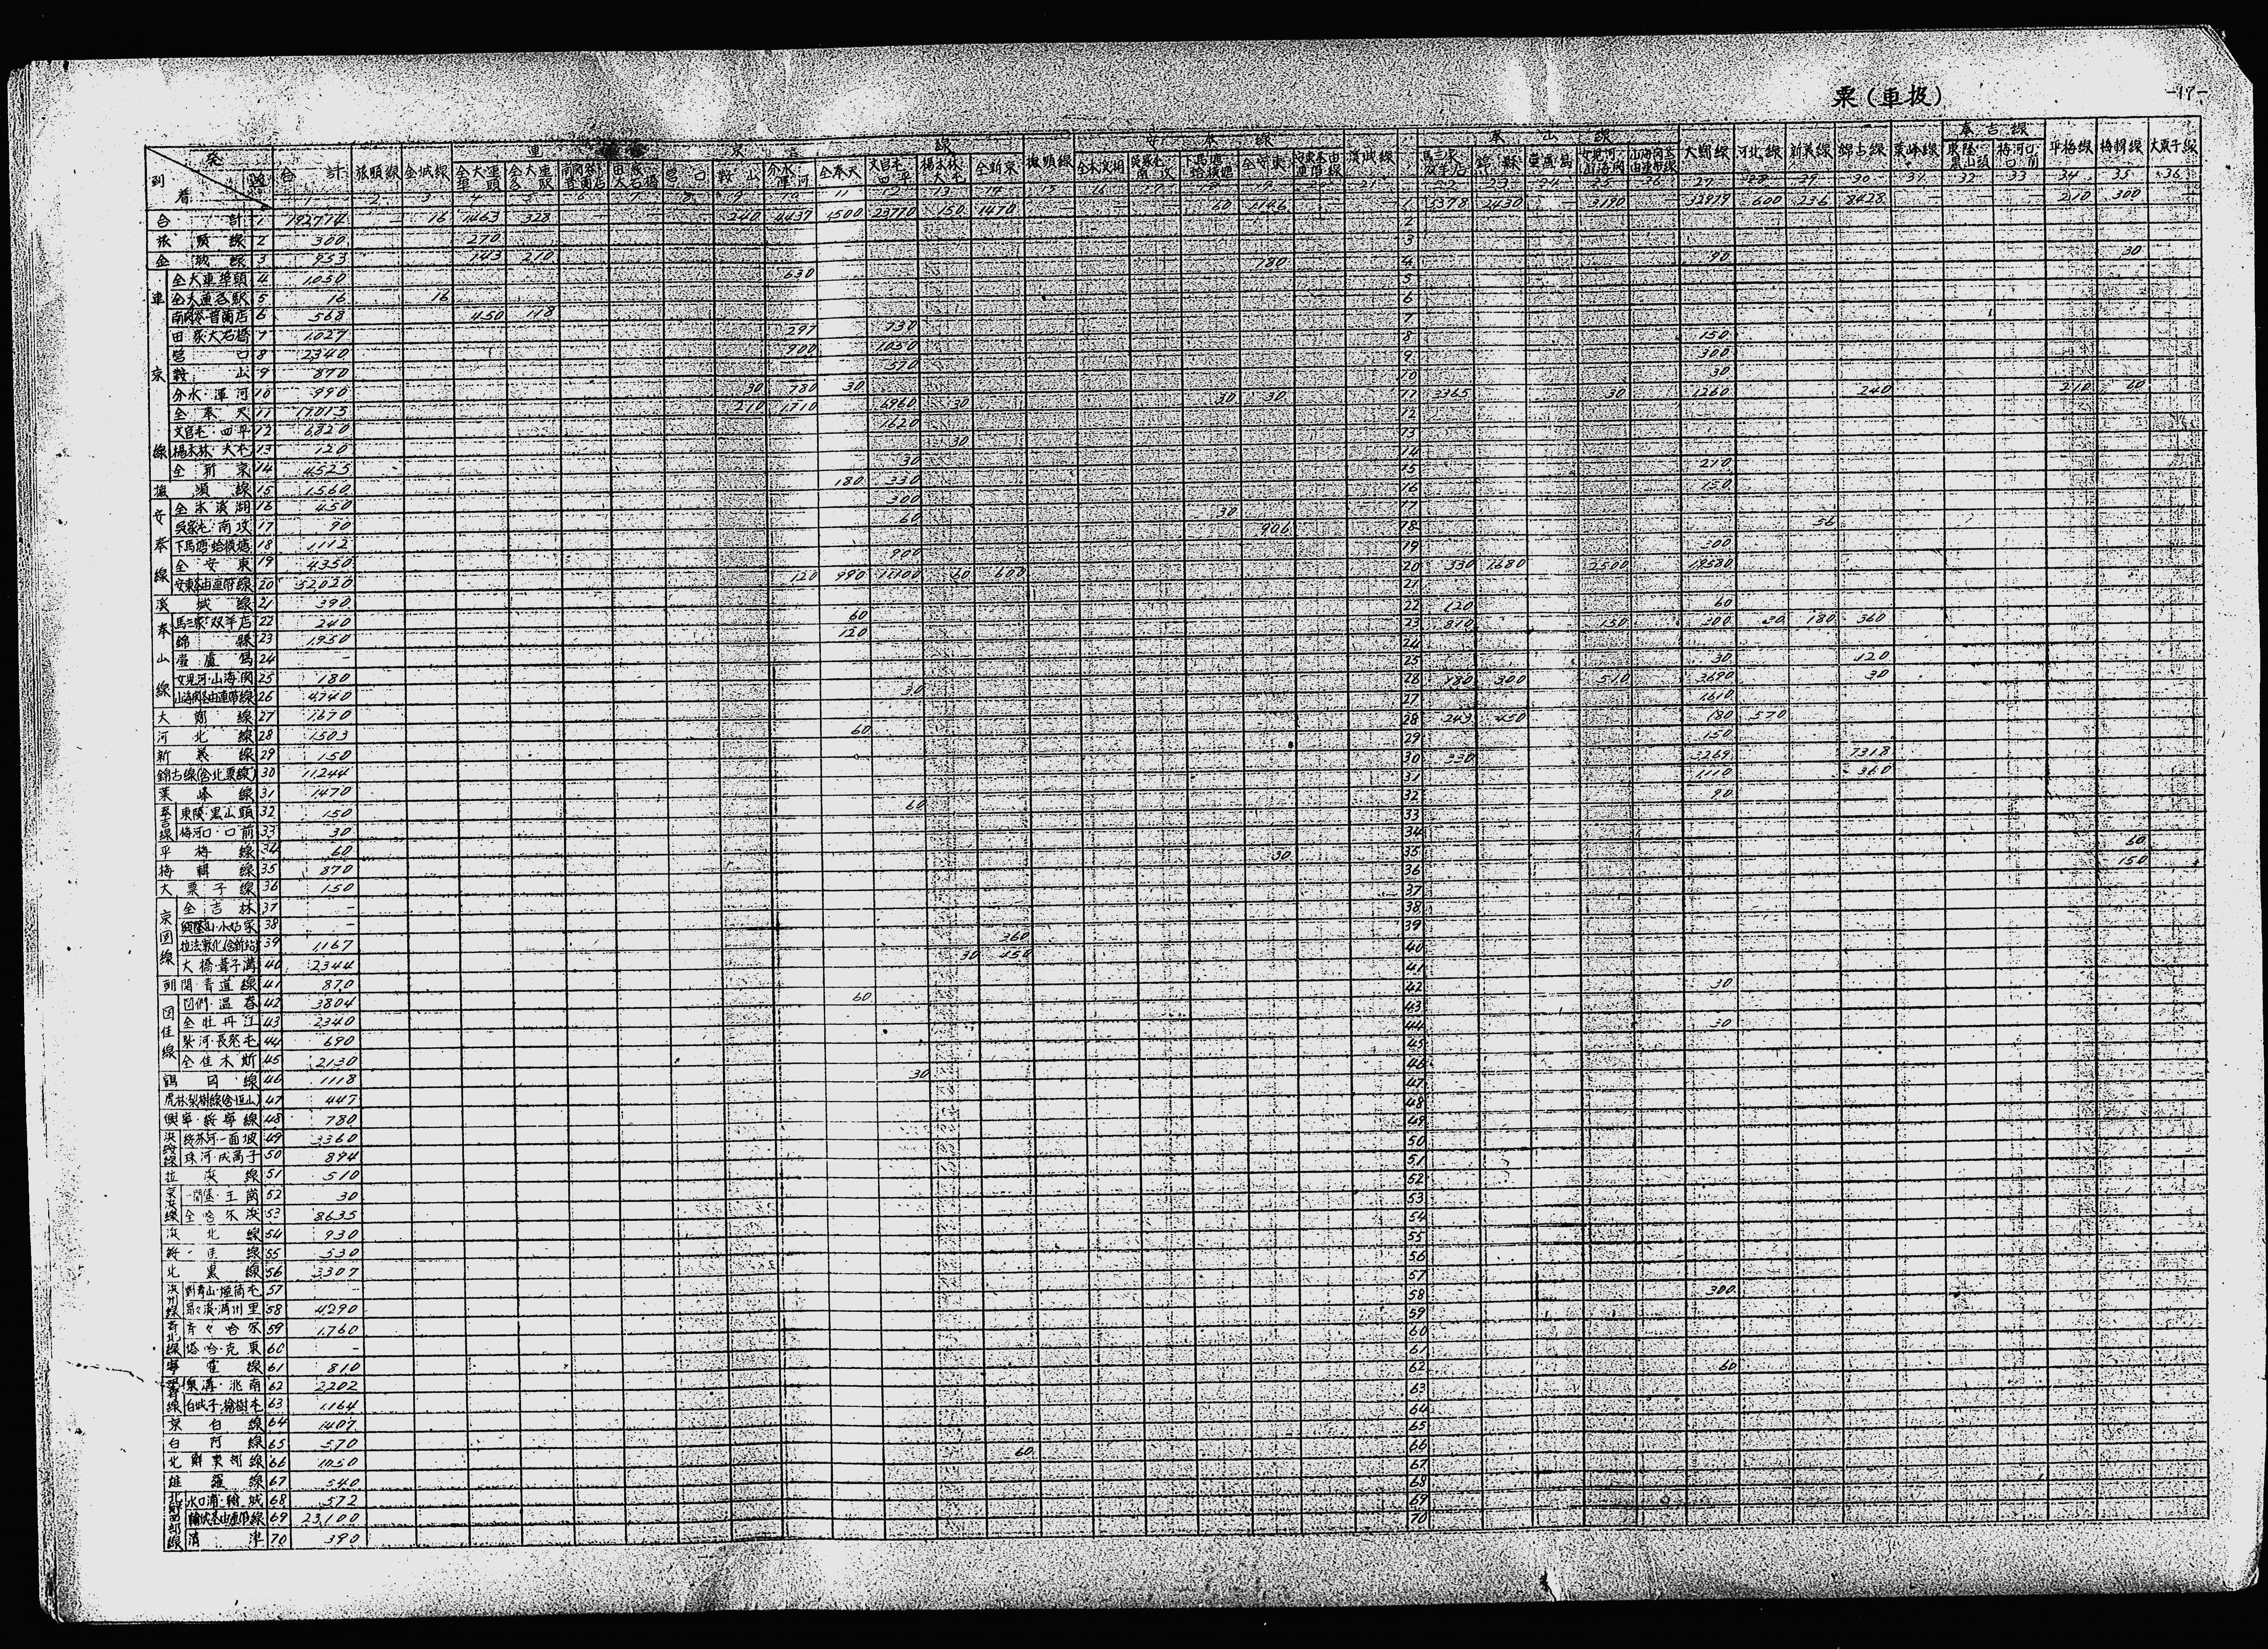 粟(車扱)
-17-
発
到
着
合計
旅順線
金城線
連京線
全大連埠頭
全大連各駅
営口
鞍山
分水 渾河
全奉天
全新京
撫順線
安奉線
全本溪湖
全安東
溪城線
奉山線
錦縣
大鄭線
河北線
新義線
錦古線
葉峰線
奉吉線
東陵 黒山頭
梅河口 口前
平梅線
梅輯線
大栗子線
合計 1 192714 - 16 1463 328 - - - - 240 4437 1500 23770 150 1470 - - - 60 1146 - - 1 5378 2430 - 3190 - 32979 600 236 8428 - - - 210 300 -
旅順線 2 300 270 2
金城線 3 953 743 210 3
全大連埠頭 4 1050 630 180 4 90 30
全大連各駅 5 16 16 5
南関嶺·普蘭店 6 568 450 118 6
田家·大石橋 7 1027 297 730 7
営口 8 2340 900 1050 8 150
鞍山 9 870 570 9 300
分水·渾河 10 990 30 780 30 10 30
全奉天 11 17015 210 1710 6960 30 30 30 11 3365 30 1260 240 210 60
文官屯·四平 12 6820 1620 12
楊木林·大屯 13 120 30 13
全新京 14 4525 30 14
撫順線 15 1560 180 330 15 210
全本溪湖 16 450 300 16 150
呉家屯·南坟 17 90 60 30 17
下馬塘·蛤蟆塘 18 1112 906 18 56
全安東 19 4350 900 19 300
安東経由連帯線 20 52020 120 990 11100 60 600 20 330 1680 2500 19580
溪城線 21 390 21
馬三家·双羊店 22 240 60 22 120 60
錦縣 23 1950 120 23 810 150 300 30 180 360
葫蘆島 24 - 24
女児河·山海関 25 180 25 30 120
山海関経由連帯線 26 4740 30 26 180 300 510 3690 30
大鄭線 27 1670 27 1610
河北線 28 1503 60 28 243 450 180 570
新義線 29 150 29 150
錦古線(含北票線) 30 11244 30 330 3269 7318
葉峰線 31 1470 31 1110 360
東陵·黒山頭 32 150 60 32 90
梅河口·口前 33 30 33
平梅線 34 60 34 60
梅輯線 35 870 30 35 150
大栗子線 36 150 36
全吉林 37 - 37
興隆山·小姑家 38 - 38
拉法敦化(含新站) 39 1167 360 39
大橋·葦子溝 40 2344 30 450 40
朝開·青道線 41 870 41
図們·温春 42 3804 60 42 30
全牡丹江 43 2340 43
柴河·長発屯 44 690 44 30
全佳木斯 45 2130 45
鶴岡線 46 1118 30 46
虎林梨樹線(含恒山) 47 447 47
興寧·綏寧線 48 780 48
綏芬河·一面坡 49 3360 49
珠河·成高子 50 894 50
拉浜線 51 510 51
一間堡·王崗 52 30 52
全哈尓浜 53 8635 53
浜北線 54 930 54
綏佳線 55 530 55
北黒線 56 3307 56
対青山·煙筒屯 57 - 57
昂々溪·満州里 58 4290 58 300
斉々哈尓 59 1760 59
塔哈·克東 60 - 60
寧霍線 61 810 61
泉溝·洮南 62 2202 62 60
白城子·楡樹屯 63 1164 63
京白線 64 1407 64
白阿線 65 570 65
北鮮東部線 66 1050 60 66
雄羅線 67 540 67
水口浦·輸城 68 572 68
輸城経由連帯線 69 23100 69
清津 70 390 70